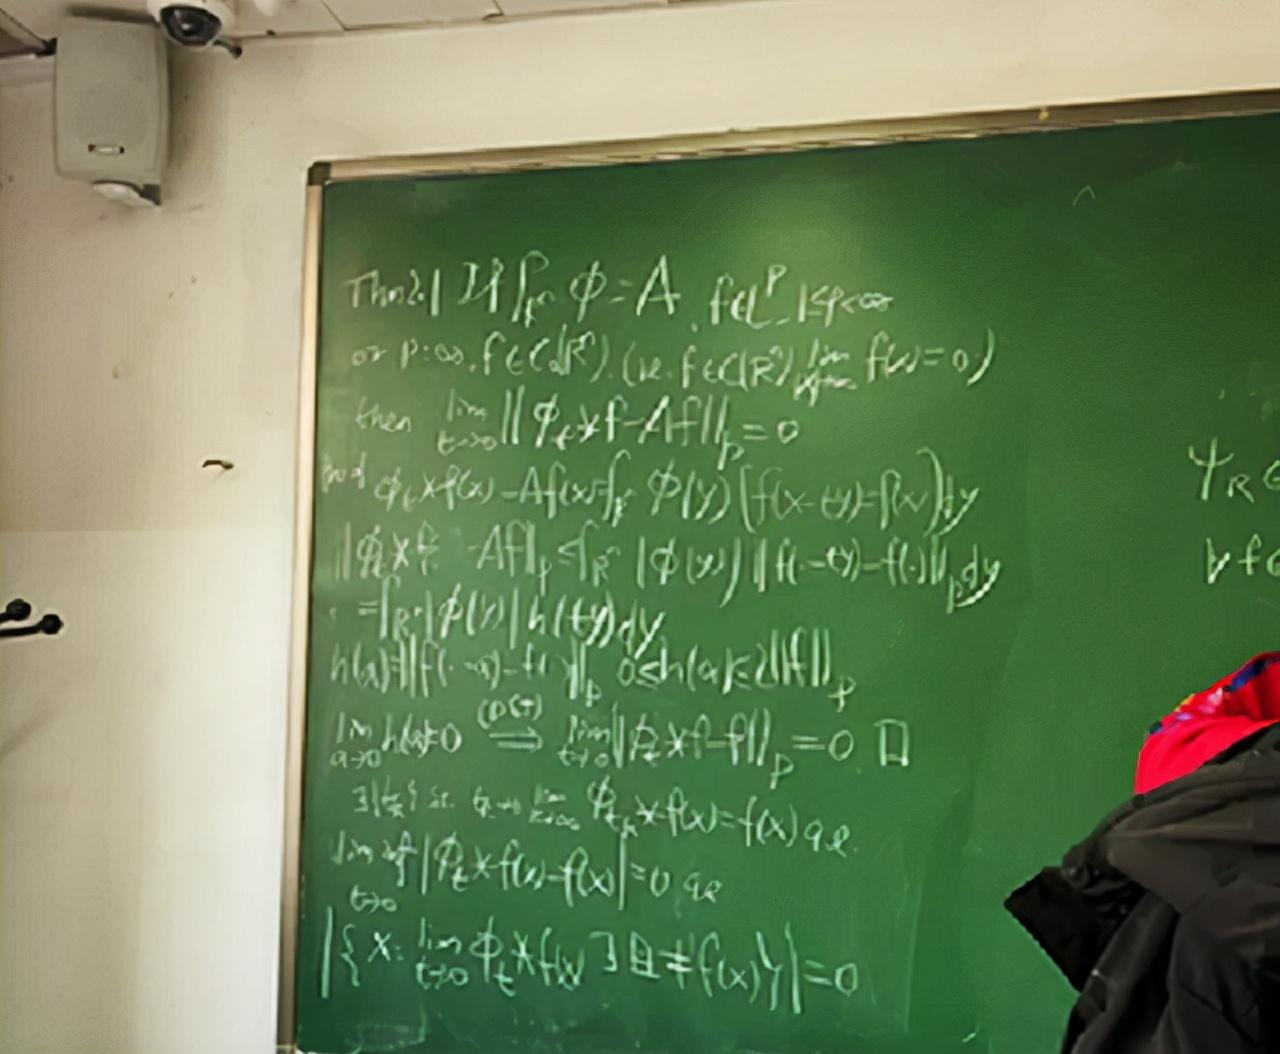 Thm 2.1 If ∫_{R^n} φ = A, f∈L^p, 1≤p<∞
or p=∞, f∈C_0(R^n). (i.e. f∈C(R^n), lim_{|x|→∞} f(x)=0)
then lim_{t→0} ||φ_t*f-Af||_p=0
proof φ_t*f(x)-Af(x)=∫_{R^n} φ(y)(f(x-ty)-f(x))dy
||φ_t*f -Af||_p≤∫_{R^n} |φ(y)| ||f(·-ty)-f(·)||_p dy
=∫_{R^n}|φ(y)|h(ty)dy
h(a)=||f(·-a)-f(·)||_p 0≤h(a)≤2||f||_p
lim_{a→0} h(a)=0 (DCT) ⟹ lim_{t→0}||φ_t*f-f||_p=0 □
∃{t_k} s.t. t_k→0 lim_{k→∞} φ_{t_k}*f(x)=f(x) a.e.
lim inf_{t→0} |φ_t*f(x)-f(x)|=0 a.e
|{x: lim_{t→0} φ_t*f(x) ∃且≠f(x)}|=0
Ψ_R∈
∀f∈